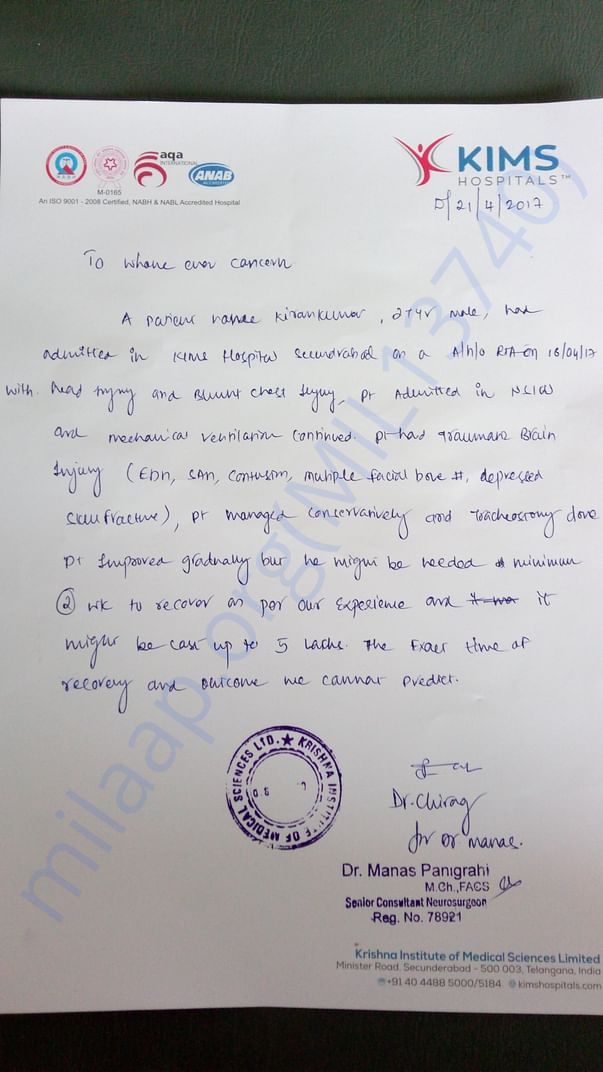 aqa
INTERNATIONAL
ANAB
ACCREDITED
M-0165
An ISO 9001 - 2008 Certified, NABH & NABL Accredited Hospital
KIMS
HOSPITALS™
D/21/4/2017
To whome ever concern
A patient name Kirankumar, 27yr male, had
admitted in KIMS Hospital Secundrabad on a A/h/o RTA on 16/04/17
with head injury and Blunt chest Injury, pt Admitted in NSICU
and mechanical ventilation continued. pt had traumatic Brain
Injury (EDH, SAH, contusion, multiple facial bone #, depressed
skull fracture), pt managed conservatively and tracheostomy done
pt Improved gradually but he might be needed minimum
② wk to recover as per our Experience and it
might be cost up to 5 Lachs. The Exact time of
recovery and outcome we cannot predict.
KRISHNA INSTITUTE OF MEDICAL SCIENCES LTD. ★
Dr. Chirag
for Dr manas.
Dr. Manas Panigrahi
M.Ch.,FACS
Senior Consultant Neurosurgeon
Reg. No. 78921
Krishna Institute of Medical Sciences Limited
Minister Road, Secunderabad - 500 003, Telangana, India
+91 40 4488 5000/5184 kimshospitals.com
milaap.org(MIL13740)